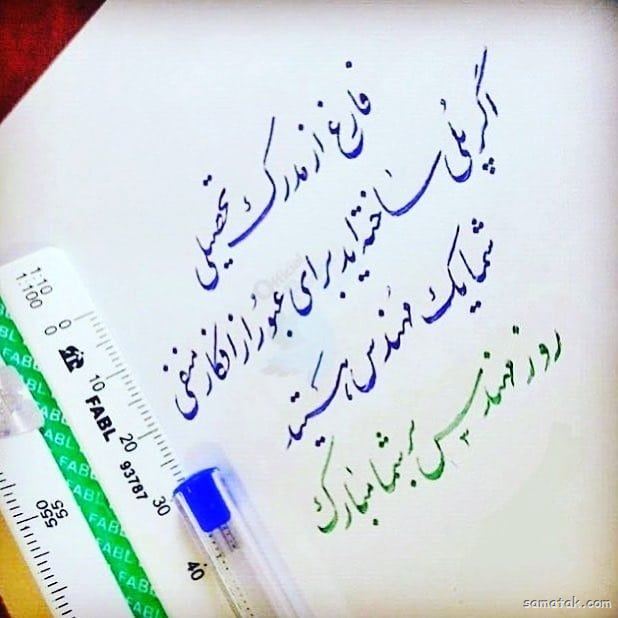 فارغ از مدرک تحصیلی
اگر پُلی ساخته‌اید برای عبُور از افکار منفی
شما یک مُهندس هستید
روز مهندس بر شما مبارک
1:10
1:100
0 0
10
FABL
20
93787
30
40
550
55
FABL FABL FABL FABL FABL FABL
samatak.com